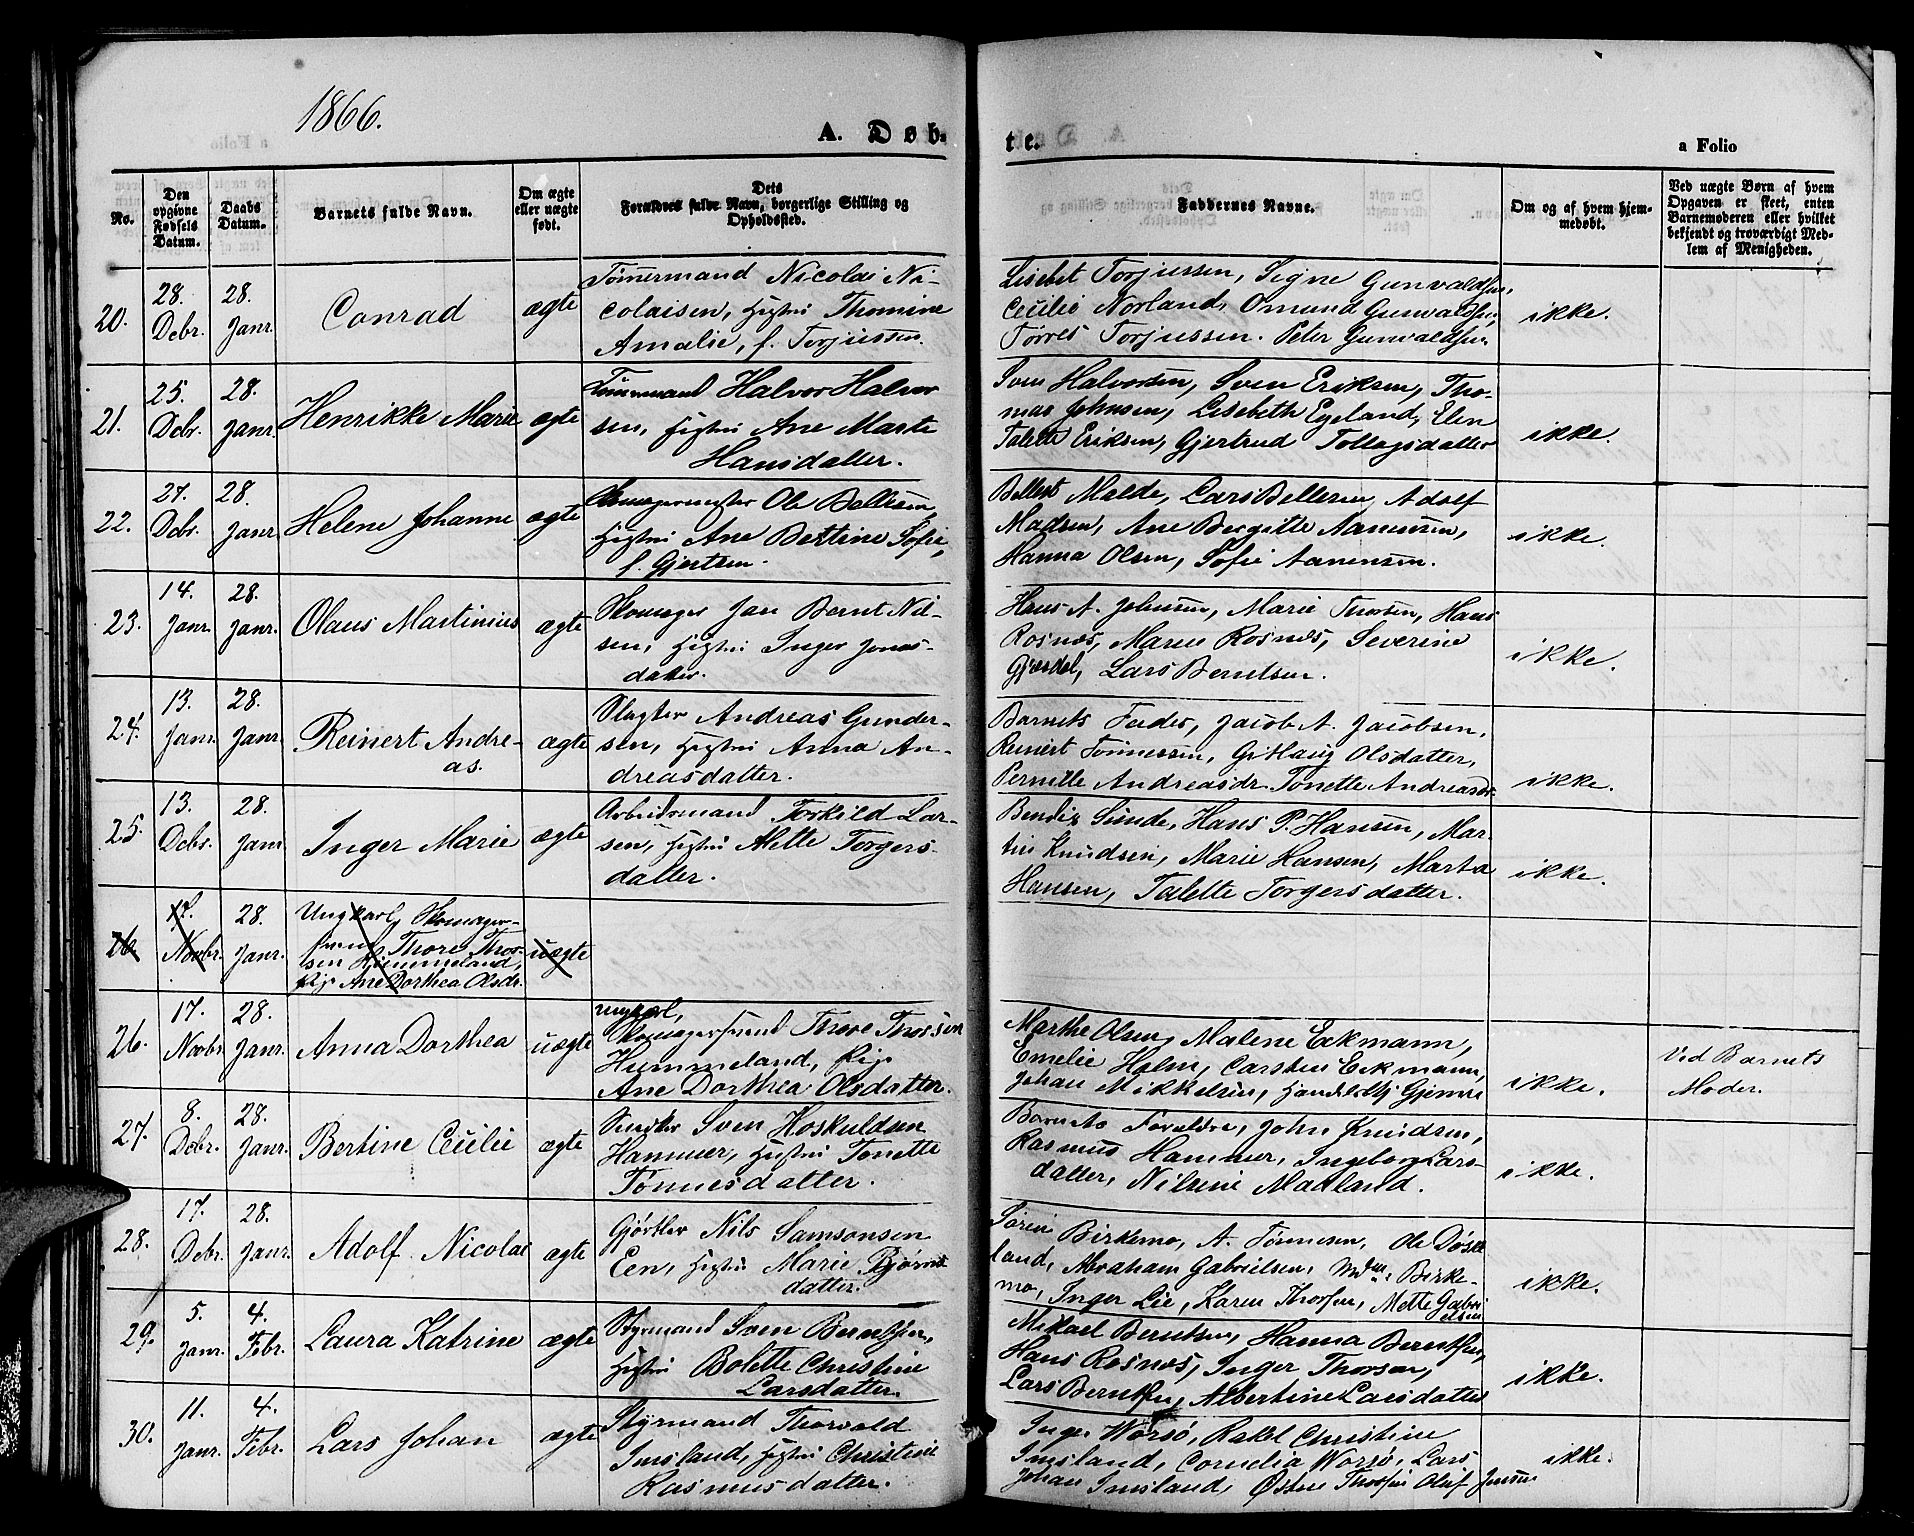 1866.
A. Døb-
te.
a Folio
No.
Den
opgivne
Fødsels
Datum.
Daabs
Datum.
Barnets fulde Navn.
Om ægte
eller uægte
født.
Dets
Forældres fulde Navn, borgerlige Stilling og
Opholdssted.
Faddernes Navne.
Om og af hvem hjem-
medøbt.
Ved uægte Børn af hvem
Opgaven er skeet, enten
Barnemoderen eller hvilket
bekjendt og troværdigt Med-
lem af Menigheden.
20.
28.
Debr.
28.
Janr.
Conrad
ægte
Tømmermand Nicolai Ni-
colaisen, Hustru Thomine
Amalie, f. Torjussen.
Lisebet Torjussen, Signe Gunvaldsen,
Cecilie Norland, Omund Gunvaldsen,
Torres Torjussen. Peter Gunvaldsen
ikke.
21.
25.
Debr.
28.
Janr.
Henrikke Marie
ægte
Tømmermand Halvor Halvor
sen, Hustru Ane Marte
Hansdatter.
Sven Halvorsen, Sven Eriksen, Tho-
mas Johnsen, Lisebeth Egeland, Elen
Talette Eriksen, Gjertrud Tollagsdatter
ikke.
22.
27.
Debr.
28.
Janr.
Helene Johanne
ægte
Skomagermester Ole Bellesen,
Hustru Ane Bettine Sofie,
f. Gjertsen.
Bellest Malde, Lars Bellesen, Adolf
Madsen, Ane Bergitte Aanensen,
Hanna Olsen, Sofie Aanensen.
ikke.
23.
14.
Janr.
28.
Janr.
Olaus Martinius
ægte
Skomager Jan Bernt Nil-
sen, Hustru Inger Jonas-
datter.
Hans A. Johnsen, Marie Thorsen, Hans
Rosnes, Maren Rosnes, Severine
Gjesdal, Lars Berntsen.
ikke.
24.
13.
Janr.
28.
Janr.
Reinert Andre-
as.
ægte
Slagter Andreas Gunder-
sen, Hustru Anna An-
dreasdatter.
Barnets Fader, Jacob A. Jacobsen,
Reinert Tønnessen, Gitlaug Olsdatter,
Pernille Andreasdr. Tonette Andreasdr.
ikke.
25.
13.
Debr.
28.
Janr.
Inger Marie
ægte
Arbeidsmand Torkild Lar-
sen, Hustru Mette Torgers-
datter.
Bendix Sunde, Hans P. Hansen, Mar-
tin Knudsen, Marie Hansen, Marta
Hansen, Talette Torgersdatter.
ikke.
26
17.
Novbr.
28.
Janr.
Ungkarl, Skomager-
svend Thore Thor-
sen Hummeland,
Pige Ane Dorthea Olsdr.
uægte
26.
17.
Novbr.
28.
Janr.
Anna Dorthea
uægte
ungkarl,
Skomagersvend Thore Thorsen
Hummeland, Pige
Ane Dorthea Olsdatter.
Marthe Olsen, Malene Eckmann,
Emelie Holm, Carsten Eckmann,
Johan Mikkelsen, Handelsbtj Gjemre
ikke.
Ved Barnets
Moder.
27.
8.
Debr.
28.
Janr.
Bertine Cecilie
ægte
Snedker Sven Hoskuldsen
Hammer, Hustru Tonette
Tønnesdatter.
Barnets Forældre, John Knudsen,
Rasmus Hammer, Ingeborg Lars-
datter, Nilsine Madland.
ikke.
28.
17.
Debr.
28.
Janr.
Adolf Nicolai
ægte
Gjørtler Nils Samsonsen
Een, Hustru Marie Bjørns
datter.
Søren Birkemo, A. Tønnesen, Ole Døske
land, Abraham Gabrielsen, Mdm. Birke-
mo, Inger Lie, Karen Thorsen, Mette Gabri
elsen
ikke.
29.
5.
Janr.
4.
Febr.
Laura Katrine
ægte
Styrmand Sven Berntsen,
Hustru Bolette Christine
Larsdatter.
Mikael Berntsen, Hanna Berntsen,
Hans Rosnes, Inger Thorsen,
Lars Berntsen, Albertine Larsdatter
ikke.
30.
11.
Janr.
4.
Febr.
Lars Johan
ægte
Styrmand Thorvald
Imsland, Hustru Christine
Rasmusdatter.
Inger Worsø, Rakel Christine
Imsland, Cornelia Worsø, Lars
Johan Imsland, Østen Thorsen Oluf Jensen
ikke.